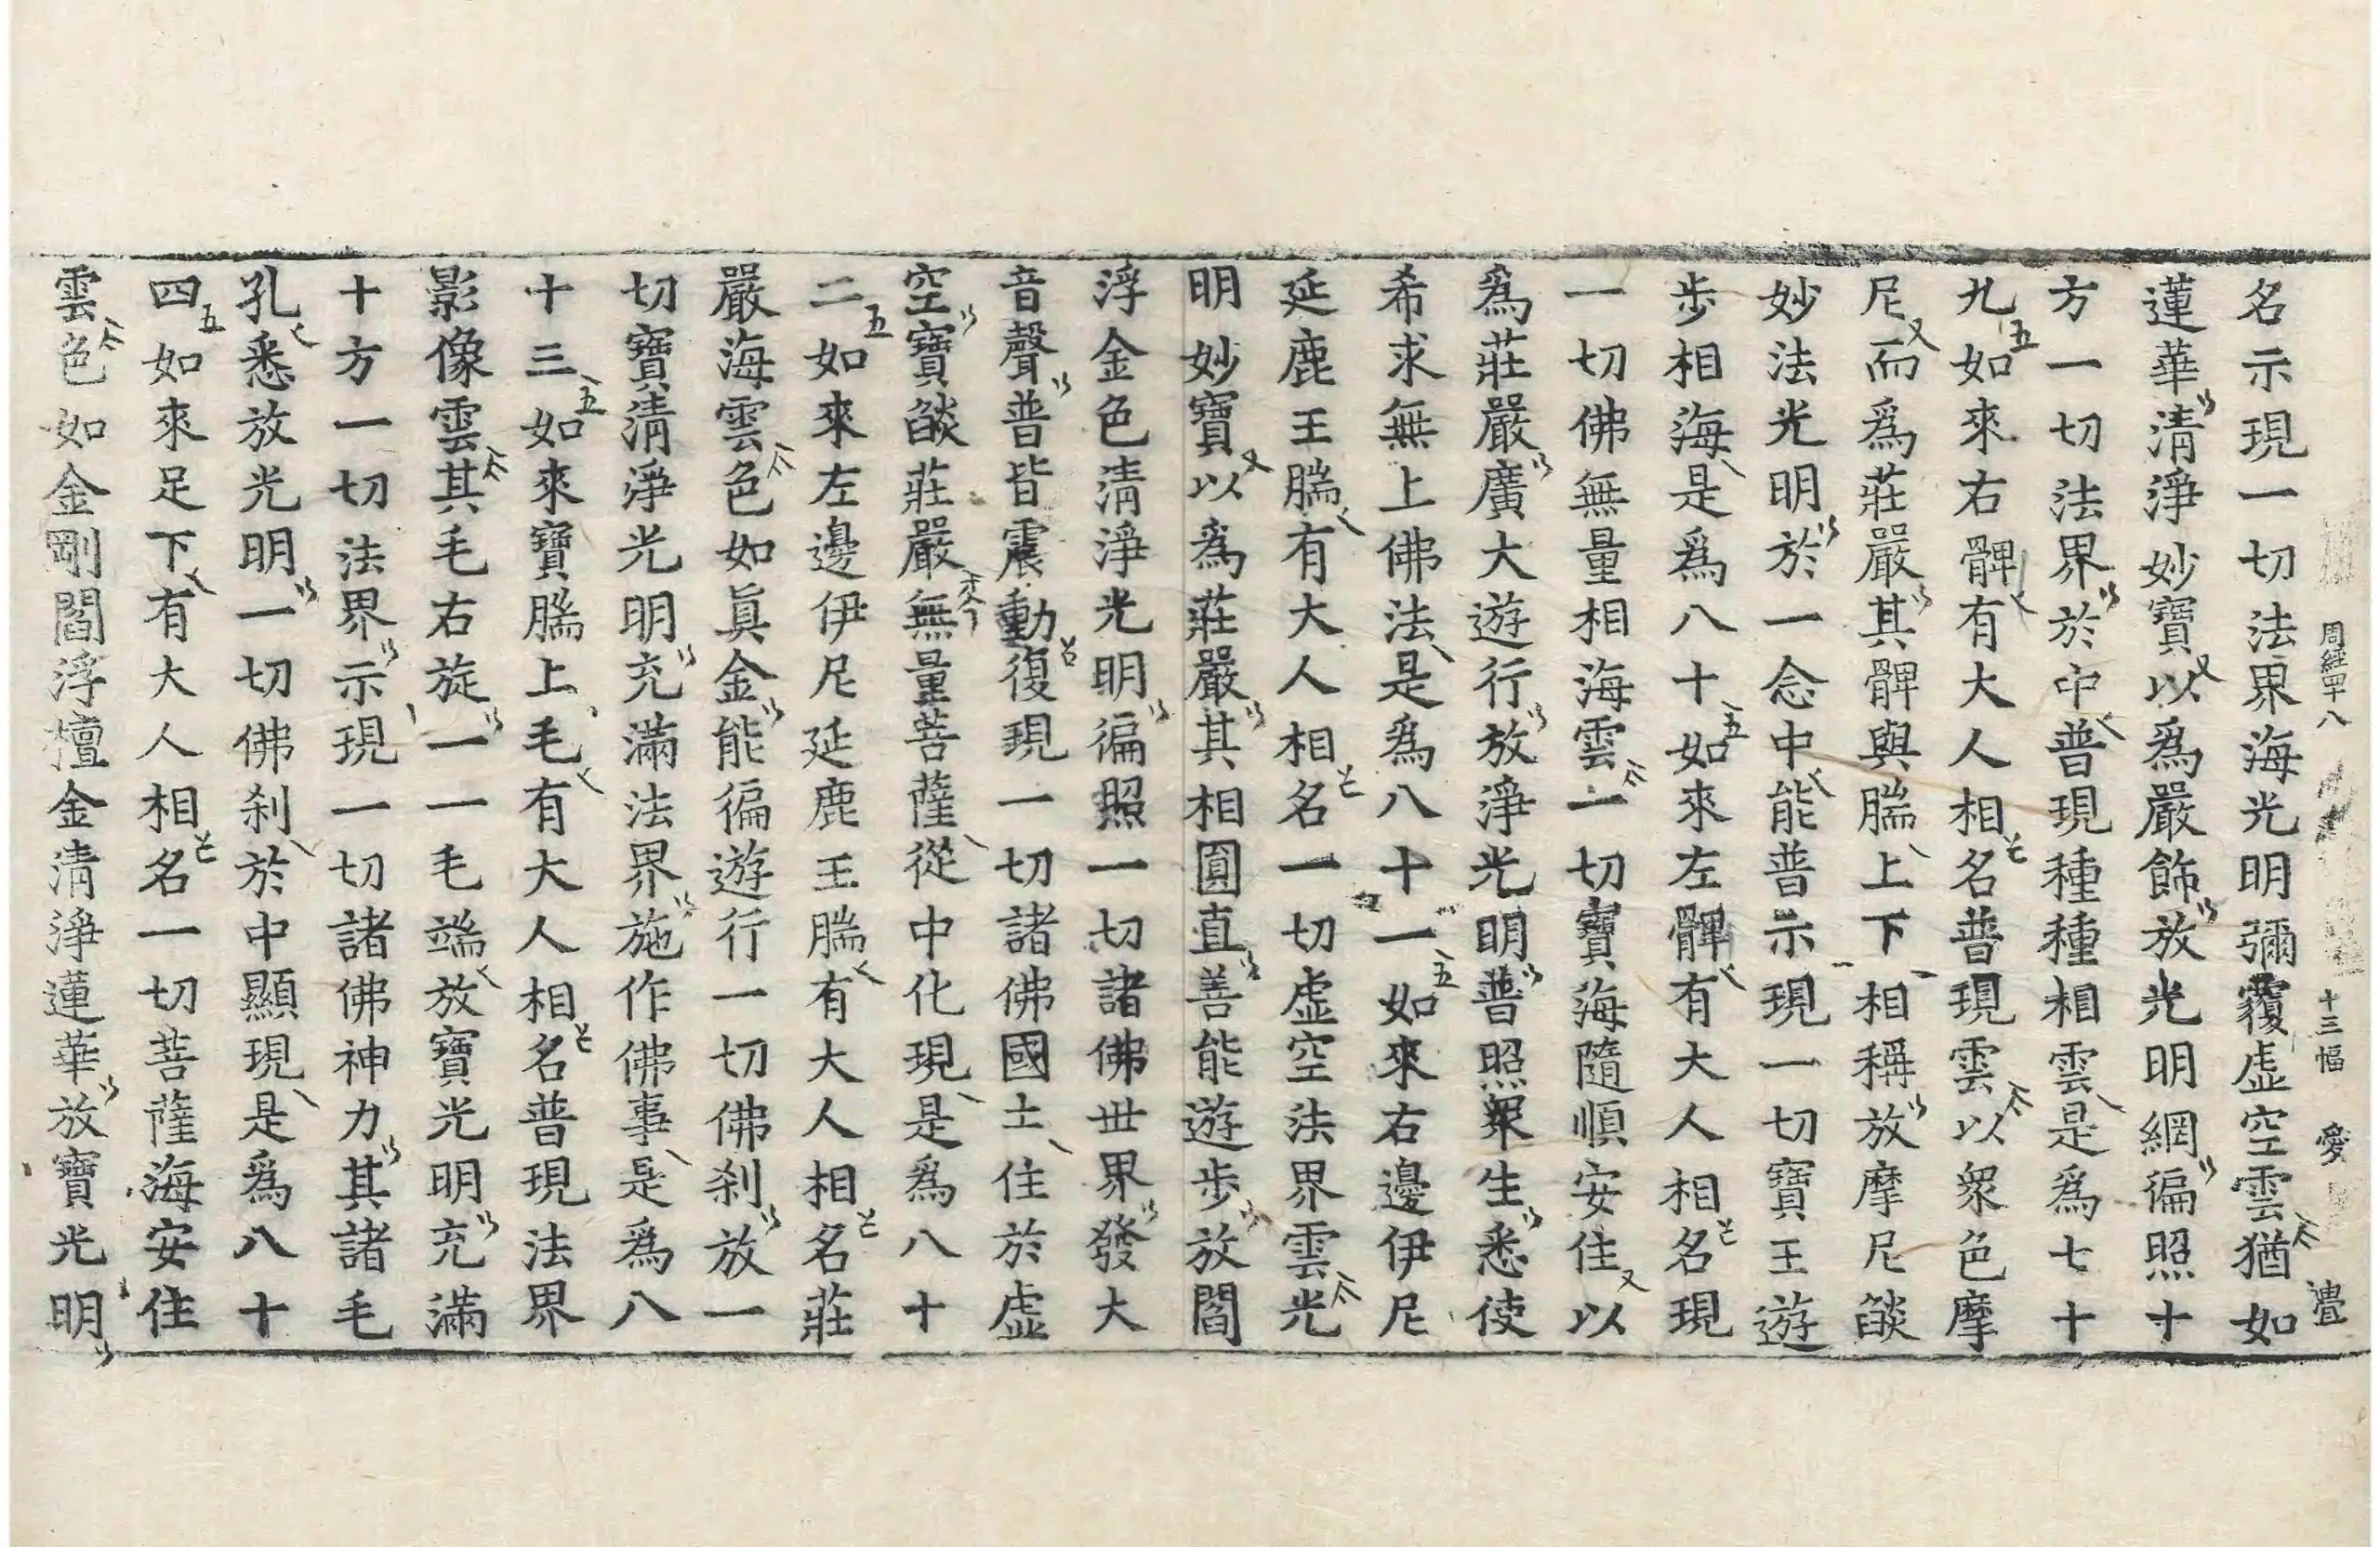 周經四十八　十三幅　愛　濃
名示現一切法界海光明彌覆虛空雲猶如
蓮華清淨妙寶以爲嚴飾放光明網徧照十
方一切法界於中普現種種相雲是爲七十
九如來右髀有大人相名普現雲以衆色摩
尼而爲莊嚴其髀與腨上下相稱放摩尼燄
妙法光明於一念中能普示現一切寶王遊
步相海是爲八十如來左髀有大人相名現
一切佛無量相海雲一切寶海隨順安住以
爲莊嚴廣大遊行放淨光明普照衆生悉使
希求無上佛法是爲八十一如來右邊伊尼
延鹿王腨有大人相名一切虛空法界雲光
明妙寶以爲莊嚴其相圓直善能遊步放閻
浮金色清淨光明徧照一切諸佛世界發大
音聲普皆震動復現一切諸佛國土住於虛
空寶燄莊嚴無量菩薩從中化現是爲八十
二如來左邊伊尼延鹿王腨有大人相名莊
嚴海雲色如眞金能徧遊行一切佛刹放一
切寶清淨光明充滿法界施作佛事是爲八
十三如來寶腨上毛有大人相名普現法界
影像雲其毛右旋一一毛端放寶光明充滿
十方一切法界示現一切諸佛神力其諸毛
孔悉放光明一切佛刹於中顯現是爲八十
四如來足下有大人相名一切菩薩海安住
雲色如金剛閻浮檀金清淨蓮華放寶光明